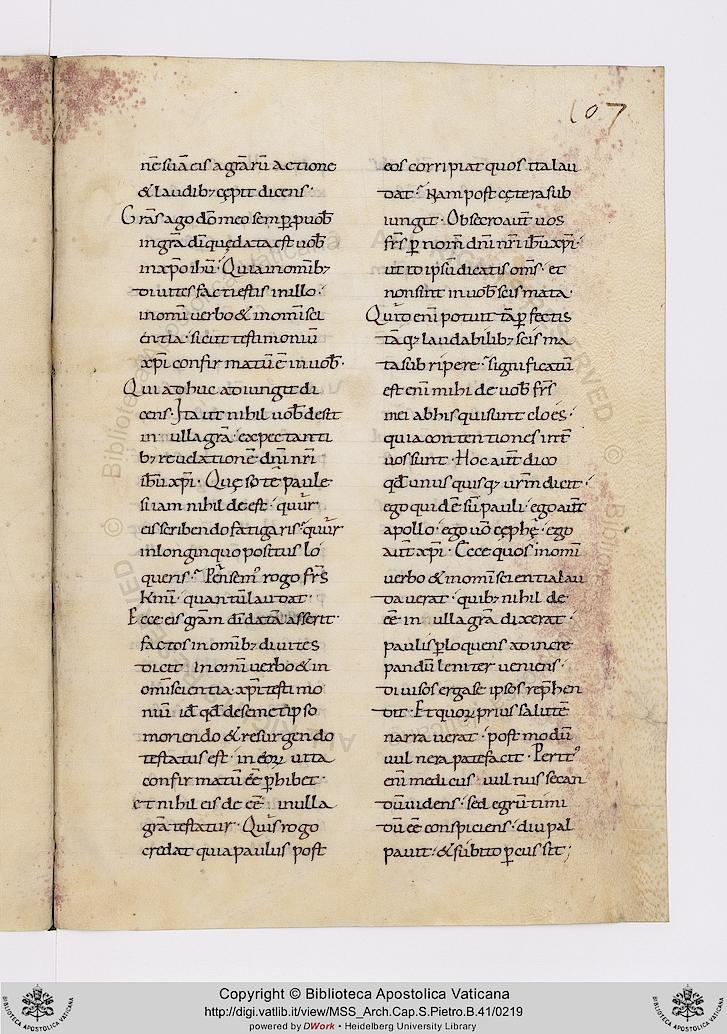 107
nē suā eis agrarū actione
& laudib; cępit dicens·
Grās ago dō meo semp̄ p̄ uob̄
in grā dī quę data est uob̄
in xp̄o ihū· Quia in omīb;
diuites facti estis in illo·
in omī uerbo & in omī sci
entia· sicut testimoniū
xp̄i confirmatū ē in uob̄·
Qui adhuc adiungit di
cens· Ita ut nihil uob̄ desit
in ulla grā· expectanti
b; reuelationē dn̄i nr̄i
ihū xp̄i· Quę so te paule
si iam nihil de est· quur
eis scribendo fatigaris· quur
in longinquo positus lo
queris· Pensem᾽ rogo fr̄s
km̄i· quantū laudat·
Ecce eis gram dī datā asserit·
factos in omīb; diuites
dicit in omī uerbo & in
omī scientia· xp̄i testimo
niū id qd̄ de semetipso
moriendo & resurgendo
testatus est· in eoꝝ uita
confirmatū eē p̄hibet·
et nihil eis de eē in ulla
grā testatur· Quis rogo
credat quia paulus post
eos corripiat quos ita lau
dat· Nam post cętera sub
iungit· Obsecro aut̄ uos
fr̄s p̄ nom̄ dn̄i nr̄i ihū xp̄i·
ut id ipsū dicatis om̄s· et
non sint in uob̄ scismata·
Quid enī potuit tā p̄fectis
tāq; laudabilib; scisma
ta subripere· significatū
est enī mihi de uob̄ fr̄s
mei ab his qui sunt cloęs·
quia contentiones int̄
uos sunt· Hoc aut̄ dico
qd̄ unus quisq; urm̄ dicit·
ego quidē sū pauli· ego aut̄
apollo· ego uō cęphę· ego
aut̄ xp̄i· Ecce quos in omī
uerbo & in omī scientia lau
dauerat· quib; nihil de
eē in ulla grā dixerat·
paulis p̄ loquens ad incre
pandū leniter ueniens·
diuisos erga se ipsos rep̄hen
dit· Et quoꝝ prius salutē
narrauerat· post modū
uulnera patefacit· Perit᾽
enī medicus· uulnus secan
dū uidens· sed egrū timi
dū eē conspiciens· diu pal
pauit· & subito p̄cussit;
Copyright © Biblioteca Apostolica Vaticana
http://digi.vatlib.it/view/MSS_Arch.Cap.S.Pietro.B.41/0219
powered by DWork • Heidelberg University Library